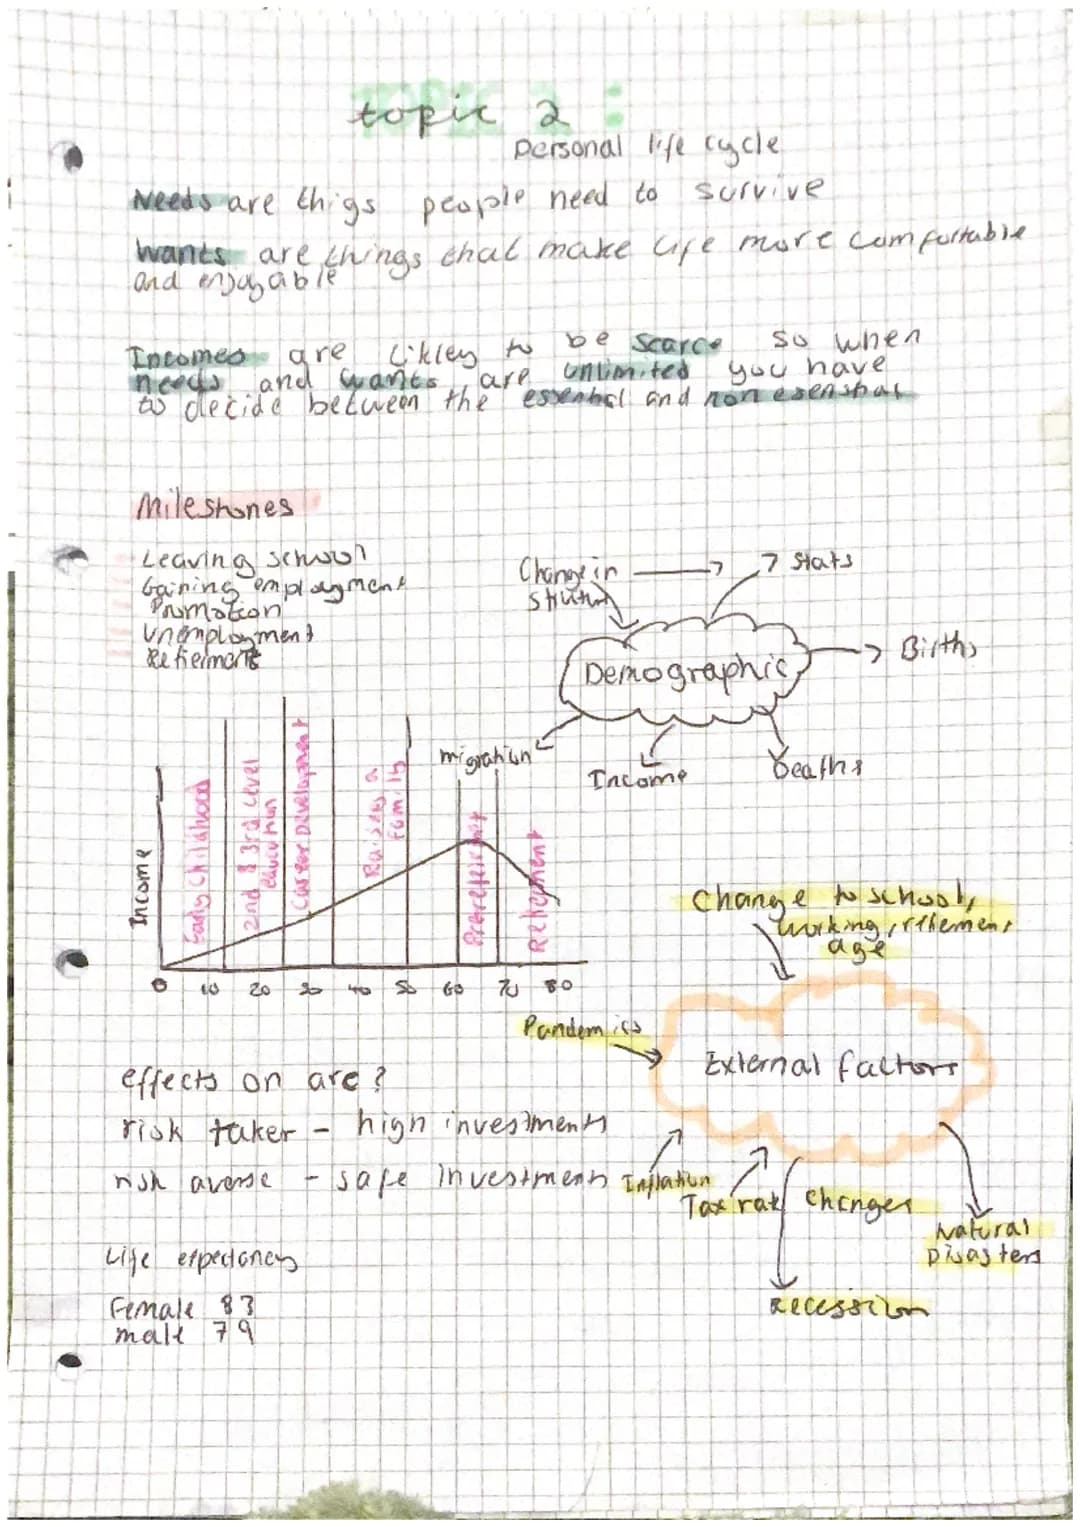 topic 2 :
personal life cycle
Needs are thigs people need to survive
Wants are things that make life more comfortable
and enjoyable
Incomes are likley to be scarce so when
needs and wants are unlimited you have
to decide between the essential and non esenstial
Milestones
Leaving school
Gaining employment
Promotion
Unemployment
Retierment
Change in
Stats
Demographic
Births
migration
Income
Deaths
Income
Early Childhood
2nd & 3rd Level
education
Career Development
Raising a
family
Preretirement
Retirement
0 10 20 30 40 50 60 70 80
Change to school,
working, retirement
age
Pandemics
External factors
effects on are?
risk taker - high investments
risk averse - safe investments
Inflation
Tax rate changes
Natural
Disasters
Recession
Life expectancy
Female 83
male 79